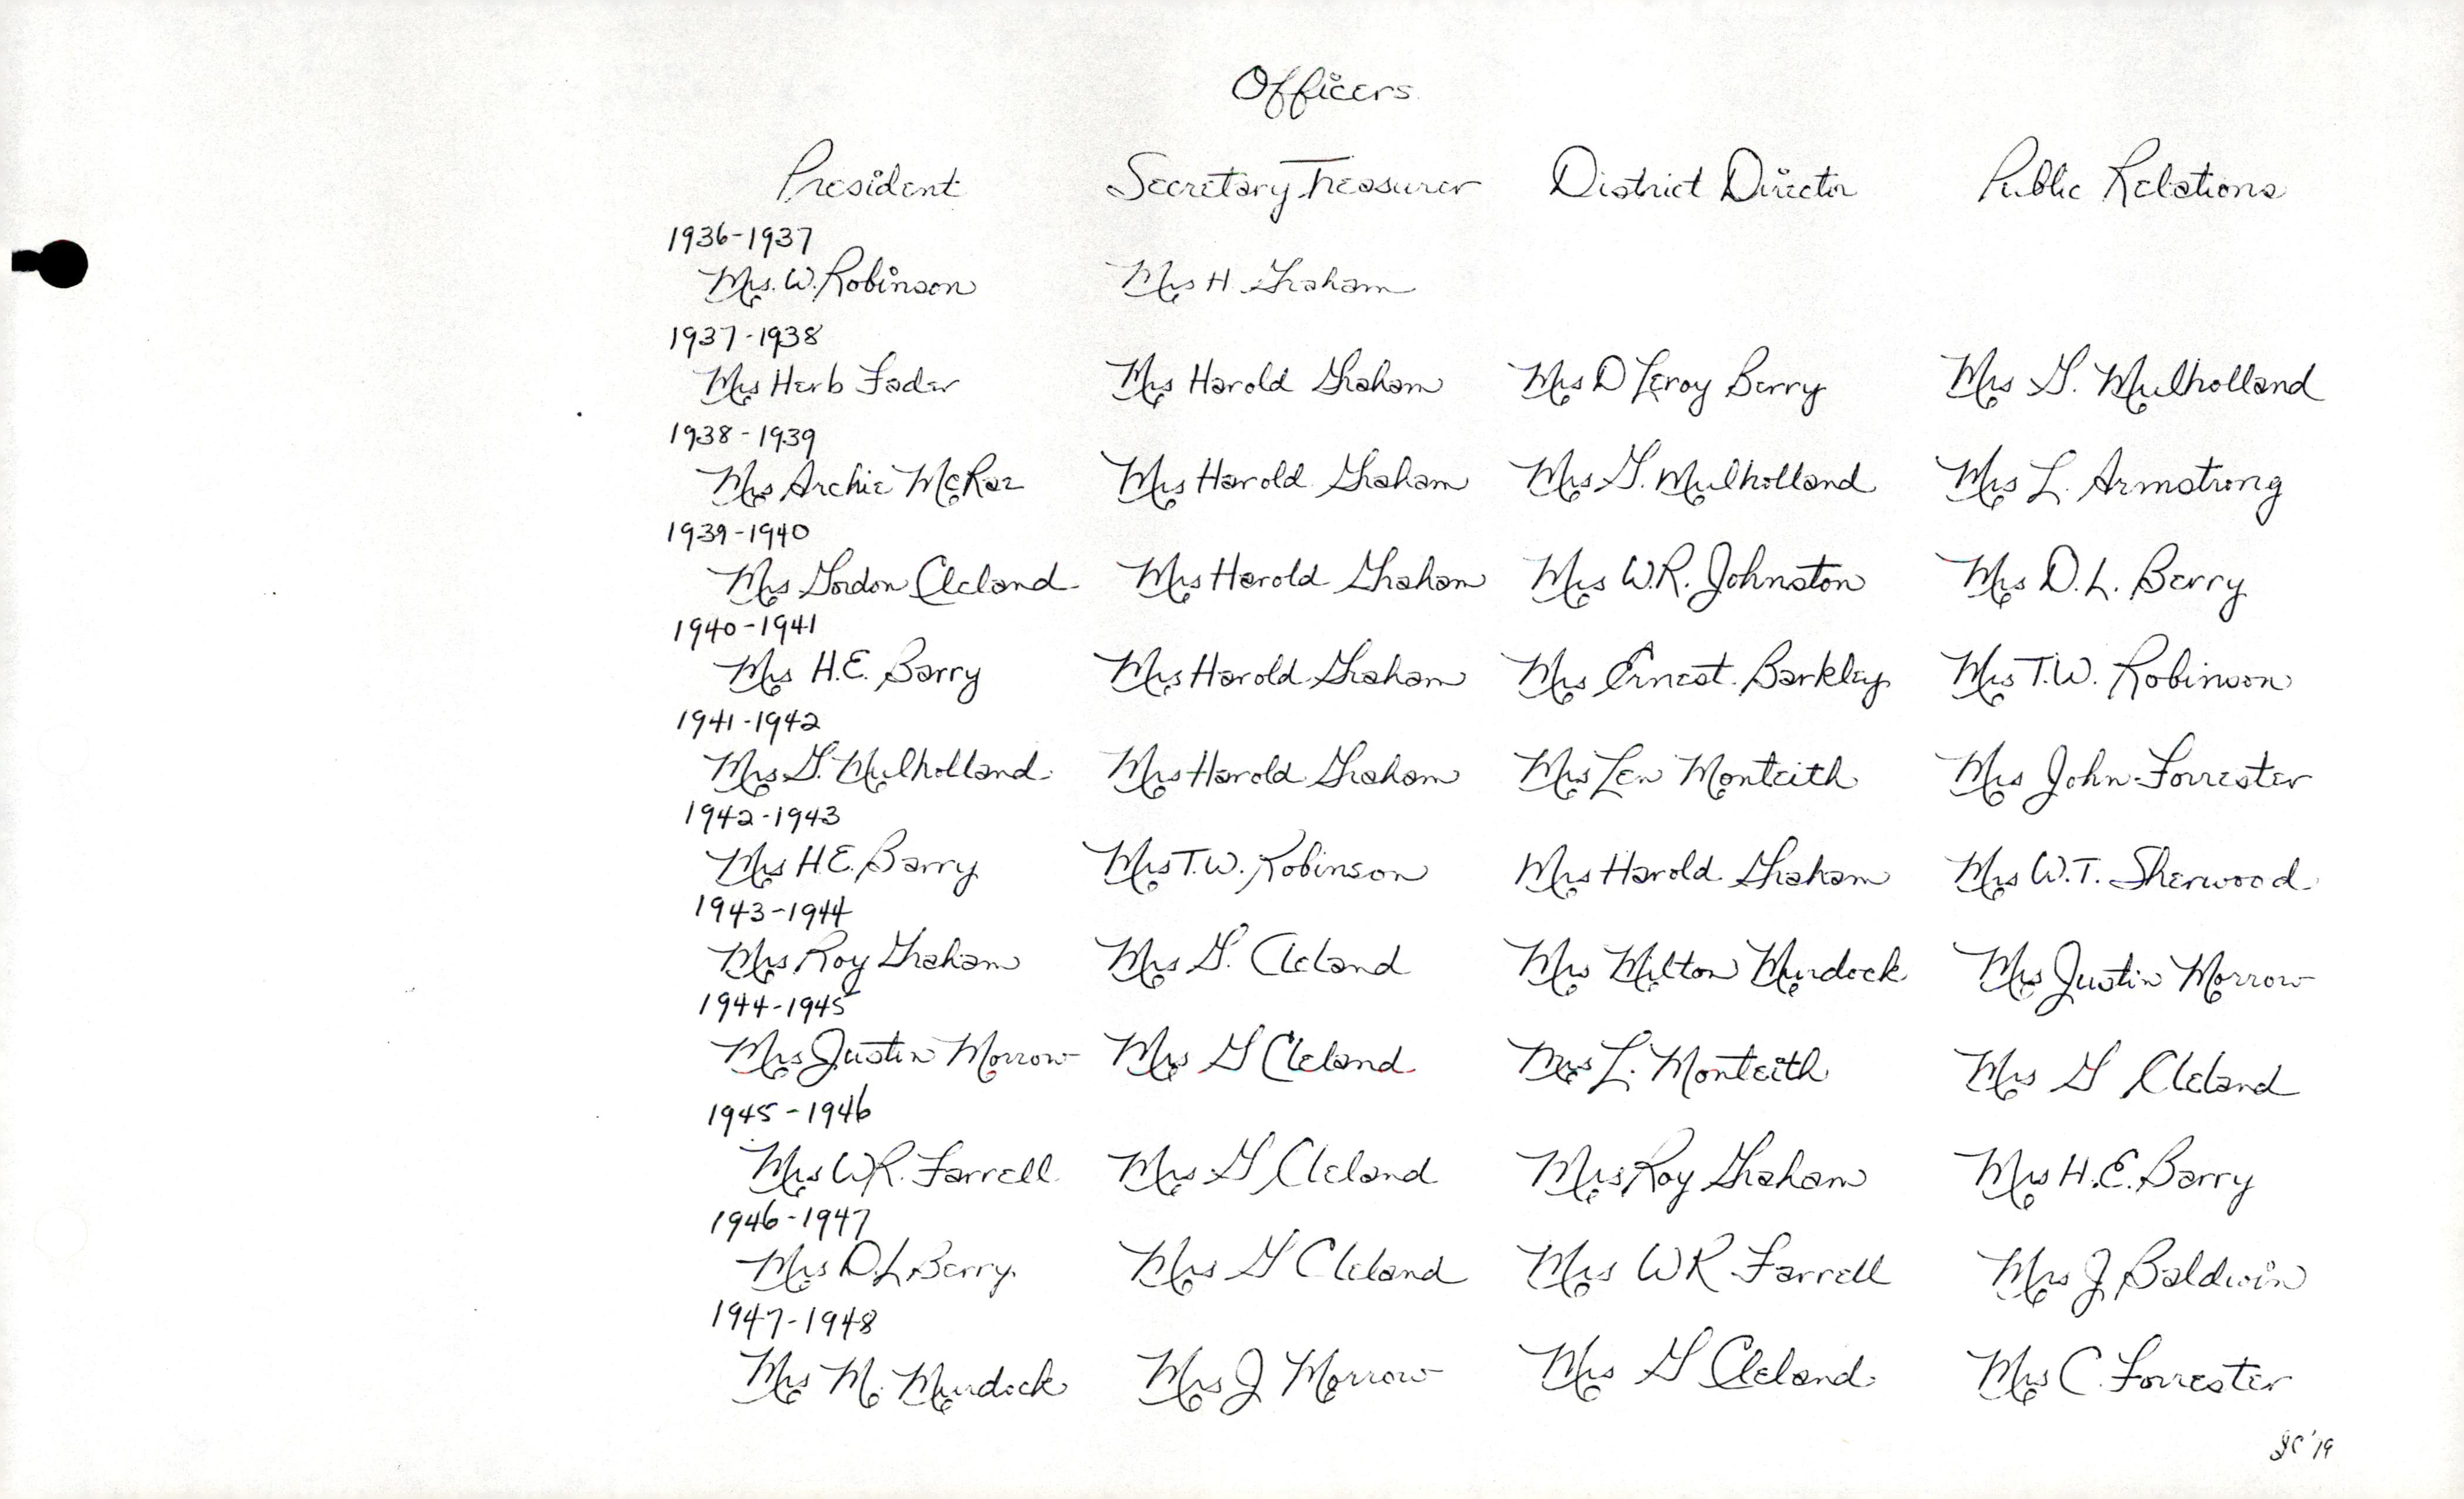 Officers
President Secretary Treasurer District Director Public Relations
1936-1937
Mrs. W. Robinson Mrs H. Graham
1937-1938
Mrs Herb Fader Mrs Harold Graham Mrs D Leroy Berry Mrs G. Mulholland
1938-1939
Mrs Archie McRae Mrs Harold Graham Mrs G. Mulholland Mrs L. Armstrong
1939-1940
Mrs Gordon Cleland Mrs Harold Graham Mrs W.R. Johnston Mrs D.L. Berry
1940-1941
Mrs H.E. Barry Mrs Harold Graham Mrs Ernest Barkley Mrs T.W. Robinson
1941-1942
Mrs G. Mulholland Mrs Harold Graham Mrs Len Monteith Mrs John Forrester
1942-1943
Mrs H.E. Barry Mrs T.W. Robinson Mrs Harold Graham Mrs W.T. Sherwood
1943-1944
Mrs Roy Graham Mrs G. Cleland Mrs Milton Murdock Mrs Justin Morrow
1944-1945
Mrs Justin Morrow Mrs G Cleland Mrs L. Monteith Mrs G Cleland
1945-1946
Mrs W.R. Farrell Mrs G Cleland Mrs Roy Graham Mrs H.E. Barry
1946-1947
Mrs D.L. Berry Mrs G Cleland Mrs WR Farrell Mrs J Baldwin
1947-1948
Mrs M. Murdock Mrs J Morrow Mrs G Cleland Mrs C. Forrester
'19